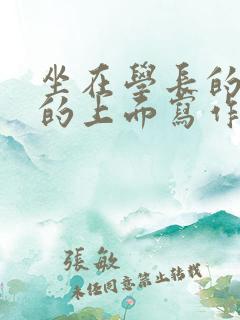 坐在學長的
的上面寫作
張敏
未经同意禁止转载